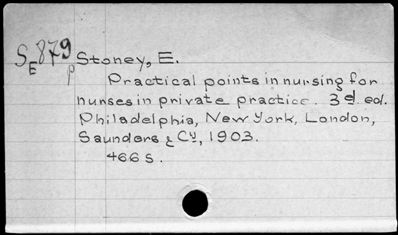 SE879 Stoney, E.
p
Practical points in nursing for
nurses in private practice. 3d. ed.
Philadelphia, New York, London,
Saunders & Cy, 1903.
466 s.